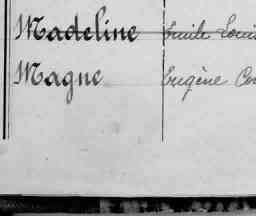 Madeline Emile Louis
Magne Eugène